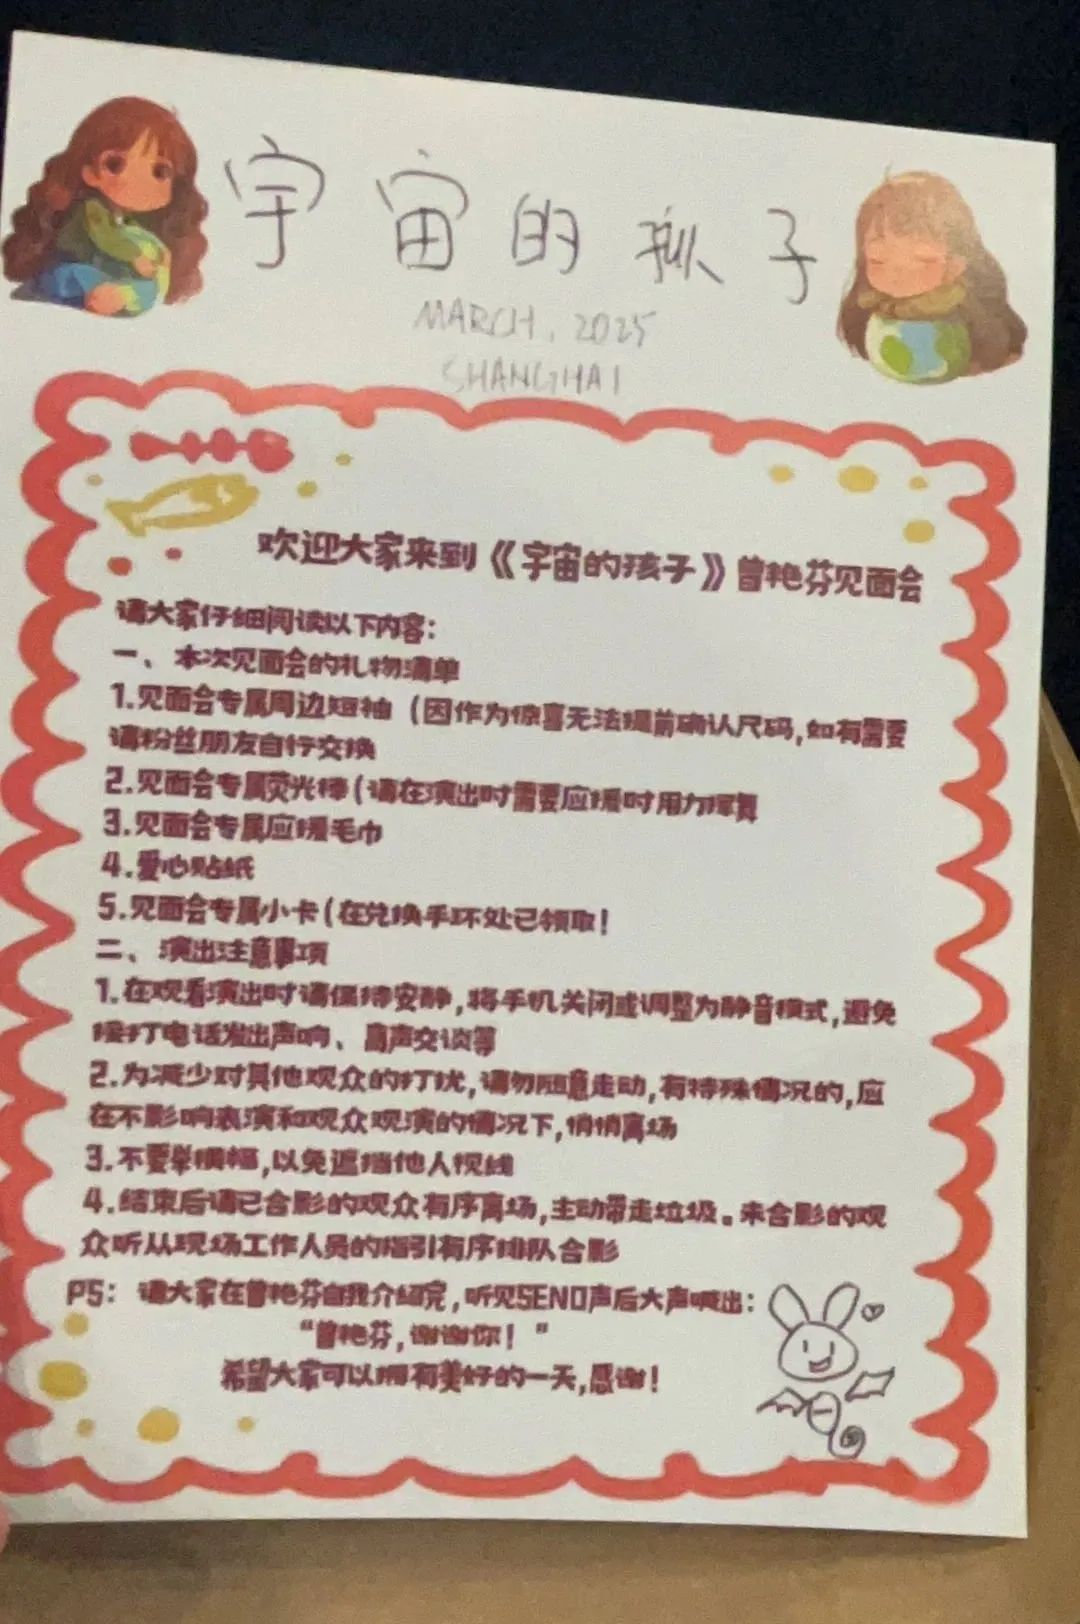 宇宙的孩子
MARCH, 2025
SHANGHAI
欢迎大家来到《宇宙的孩子》曾艳芬见面会
请大家仔细阅读以下内容：
一、本次见面会的礼物清单
1.见面会专属周边短袖（因作为惊喜无法提前确认尺码,如有需要
请粉丝朋友自行交换
2.见面会专属荧光棒(请在演出时需要应援时用力挥舞
3.见面会专属应援毛巾
4.爱心贴纸
5.见面会专属小卡(在兑换手环处已领取!
二、演出注意事项
1.在观看演出时请保持安静,将手机关闭或调整为静音模式,避免
接打电话发出声响、高声交谈等
2.为减少对其他观众的打扰,请勿随意走动,有特殊情况的,应
在不影响表演和观众观演的情况下,悄悄离场
3.不要举横幅,以免遮挡他人视线
4.结束后请已合影的观众有序离场,主动带走垃圾。未合影的观
众听从现场工作人员的指引有序排队合影
PS: 请大家在曾艳芬自我介绍完,听见SEND声后大声喊出:
“曾艳芬,谢谢你!”
希望大家可以拥有美好的一天,感谢!